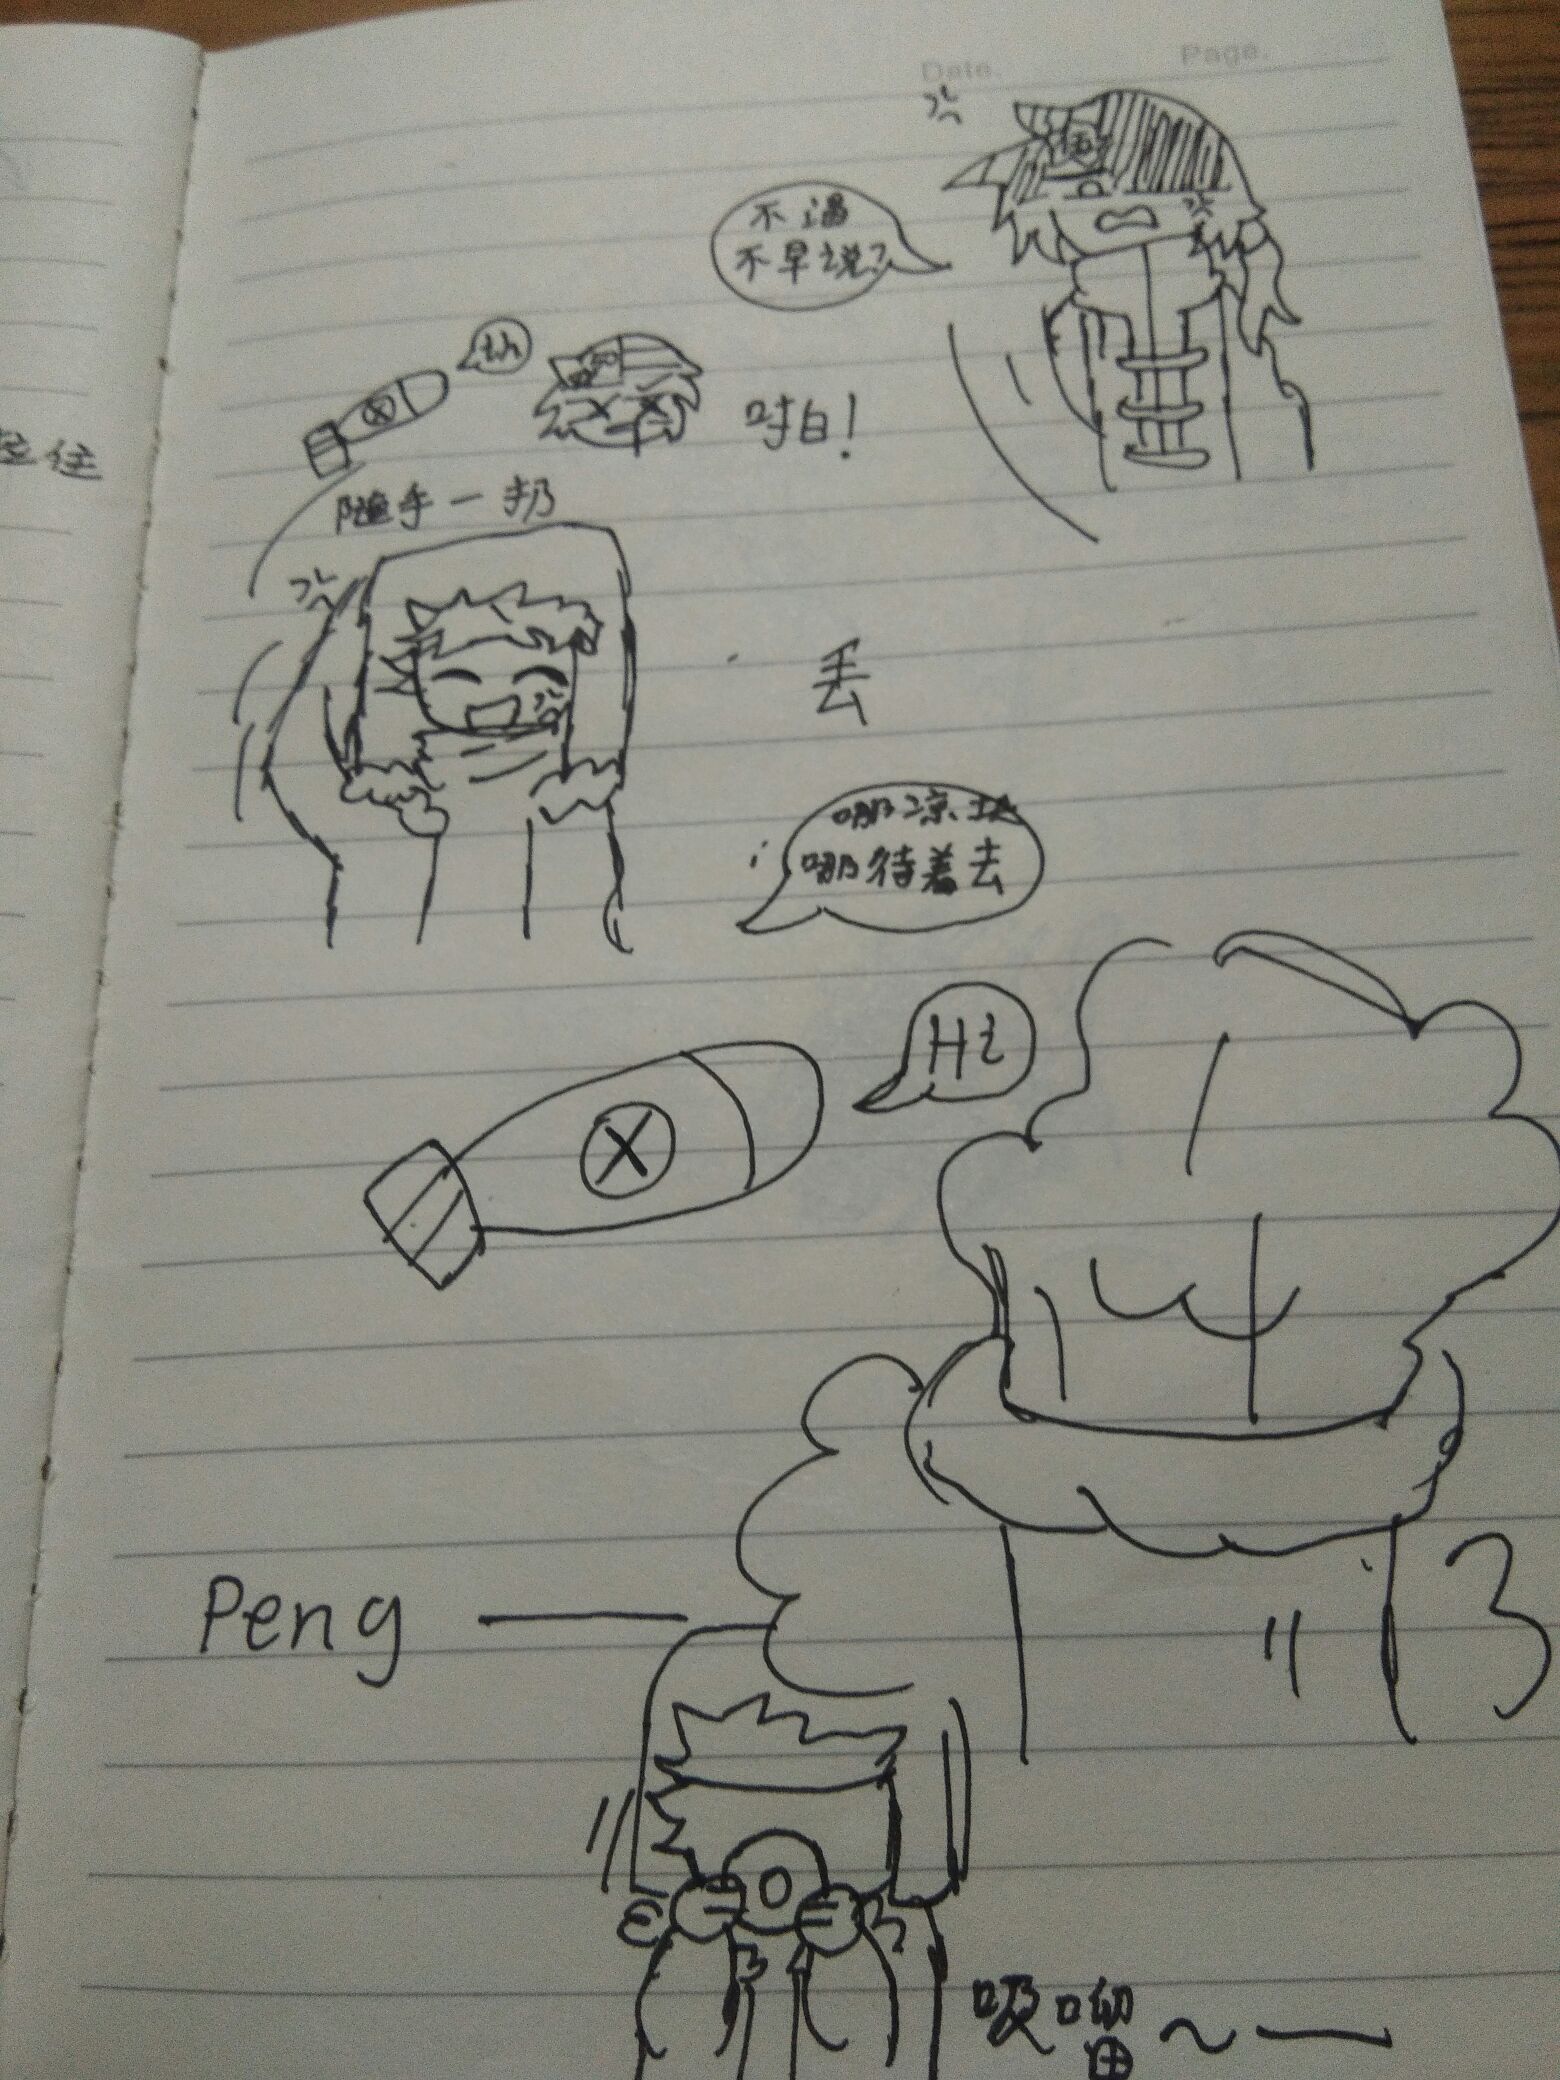 Date.
Page.
不温
不早说?
th
吋白!
随手一扔
丢
哪凉块
哪待着去
Hi
Peng
吸噌~